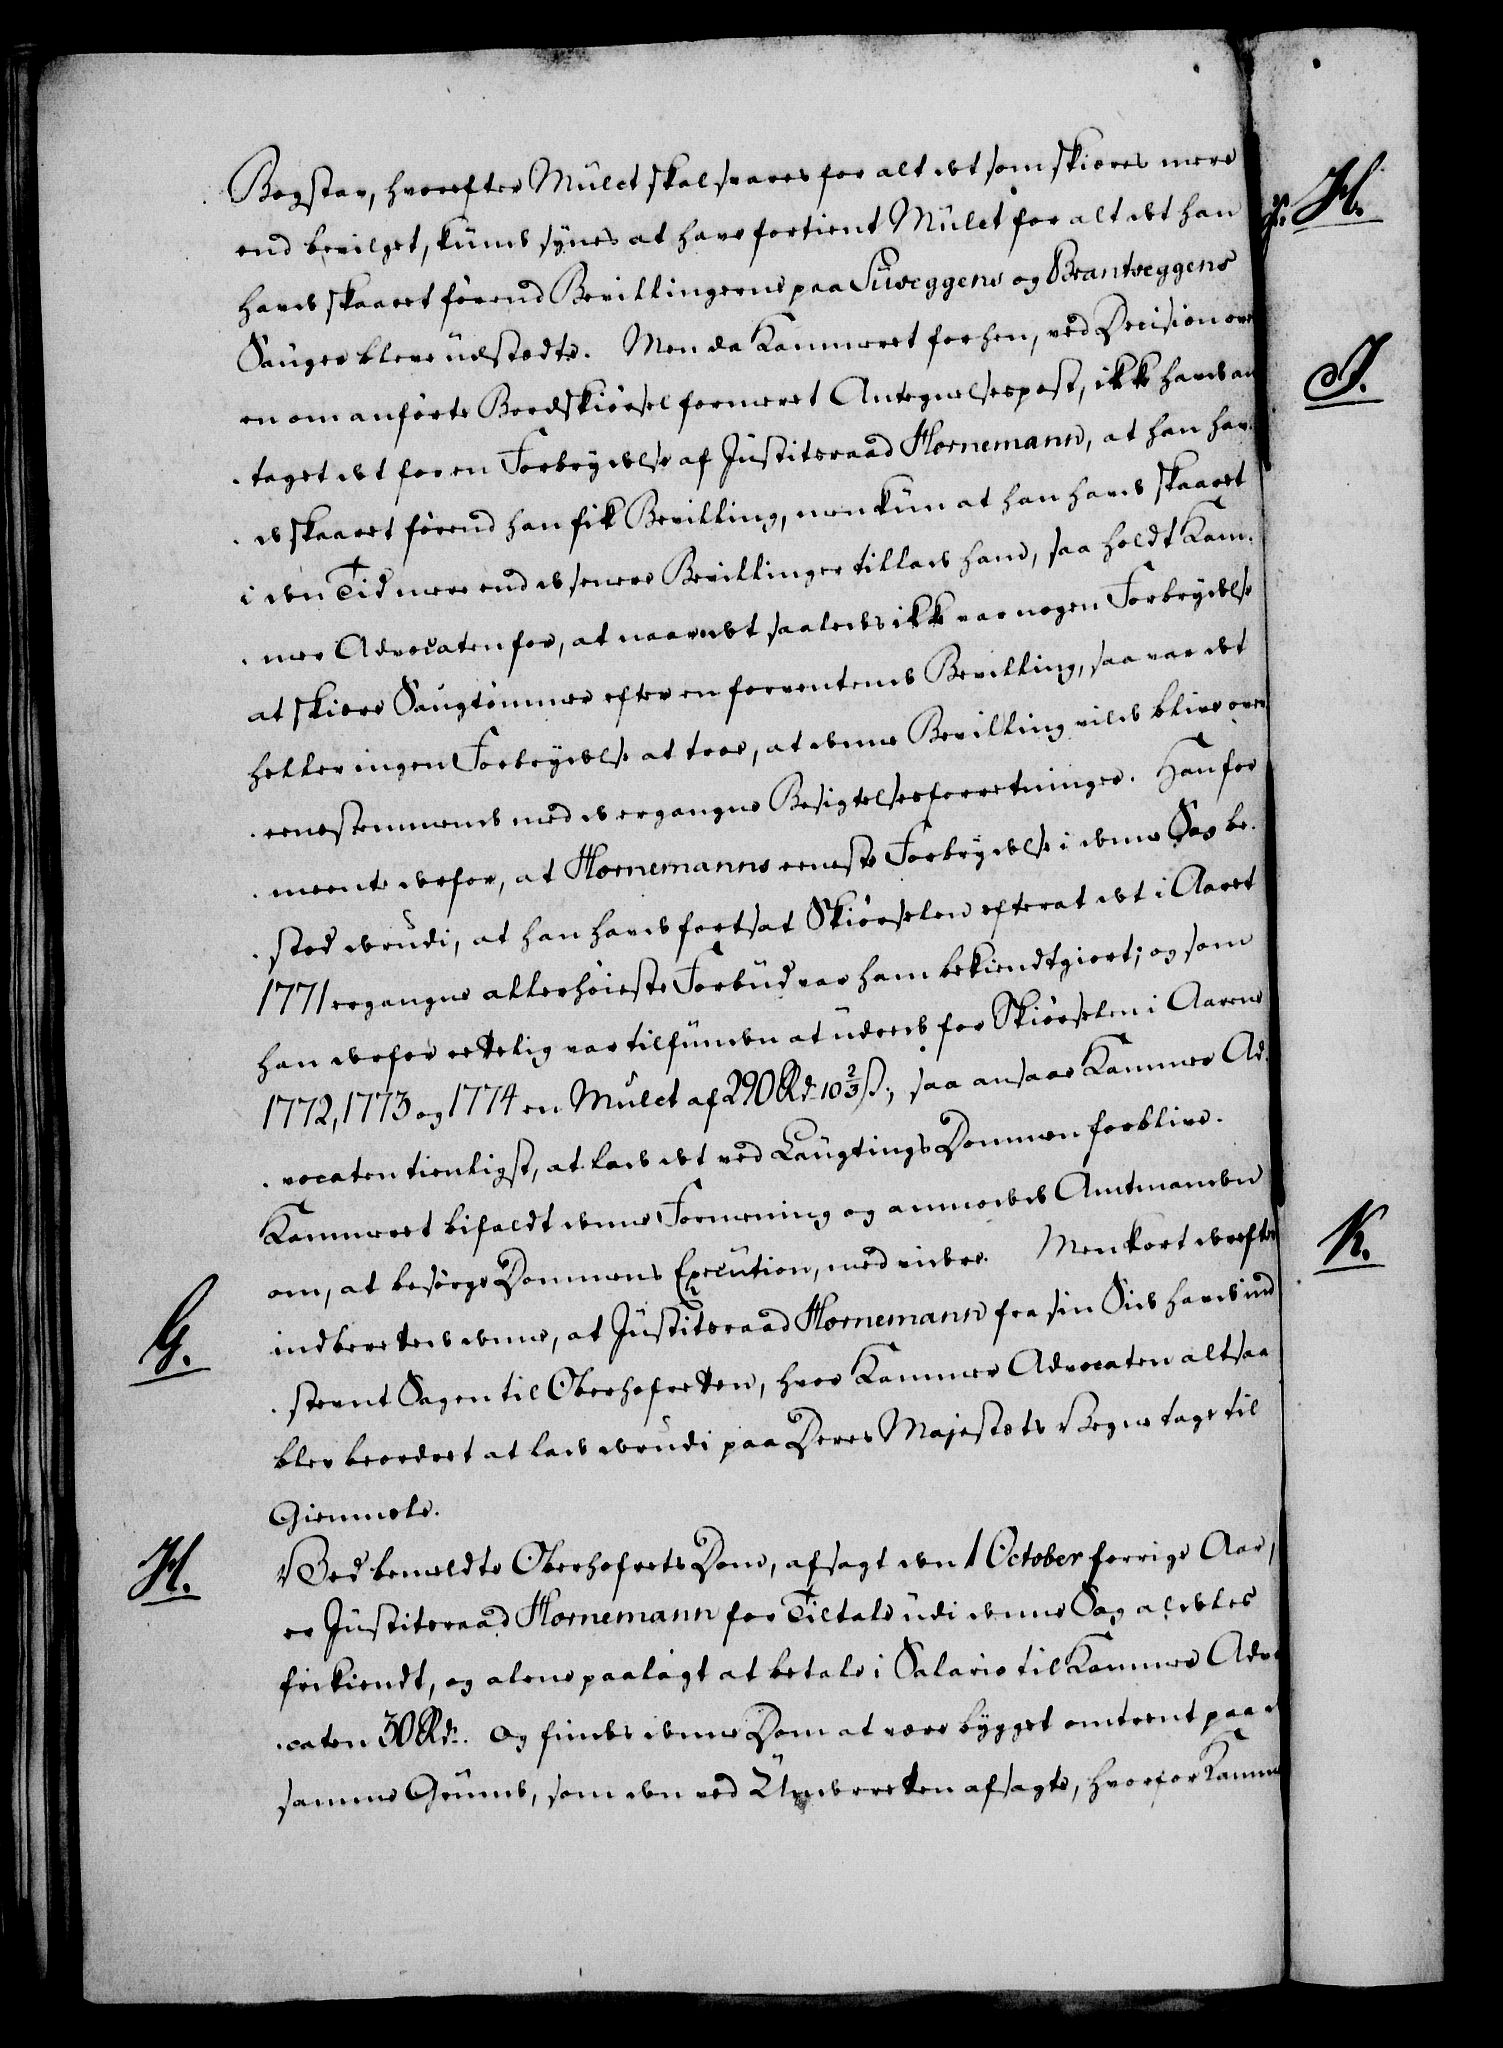 Bogstav, hvorefter Mulct skal svares for alt det som skiæres mere
end bevilget, kunde synes at have fortient Mulct for alt det han
havde skaaret førend Bevillingerne paa Suseggens og Brantseggens
Sauger bleve udstædte. Men da Kammeret forhen, ved Decision over
en om anførte Bordskiørsel formeret Antegnelsespost, ikke havde an
taget det for en Forbrydelse af Justitsraad Hornemann, at han hav-
de skaaret førend han fik Bevilling, men kun at han havde skaaret
i den Tid mere end de senere Bevillinger tillod ham, saa holdt Kam-
mer Advocaten for, at naar det saaledes ikke var nogen Forbrydelse
at skiære Saugtømmer efter en forventende Bevilling, saa var det
heller ingen Forbrydelse at troe, at denne Bevilling vilde blive over
eensstemmende med de ergangne Besigtelsesforretninger. Han for
meente derfor, at Hornemanns eeneste Forbrydelse i denne Sag be-
stod derudi, at han havde fortsat Skiørselen efterat det i Aaret
1771 ergangne allerhøieste Forbud var ham bekiendtgiort; og som
han derfor rettelig var tilfunden at udrede for Skiørselen i Aarene
1772, 1773 og 1774 en Mulct af 290 Rd. 10 2/3 ß; saa ansaae Kammer Ad-
vocaten tienligst, at lade det ved Laugtings Dommen forblive.
Kammeret bifaldt denne Formening og anmodede Amtmanden
om, at besørge Dommens Execution, med videre. Men kort derefter
G. indberettede denne, at Justitsraad Hornemann fra sin Side havde ind
stevnt Sagen til Oberhofretten, hvor Kammer Advocaten altsaa
blev beordret at lade derudi paa Deres Majestets Vegne tage til
Giemmele.
H. Ved bemeldte Oberhofrets Dom, afsagt den 1 October forrige Aar,
er Justitsraad Hornemann for Tiltale udi denne Sag aldeles
frikiendt, og alene paalagt at betale i Salario til Kammer Advo
caten 30 Rd. Og findes denne Dom at være bygget omtrent paa
samme Grunde, som den ved Underretten afsagte, hvorfor Kamme
H.
I.
K.